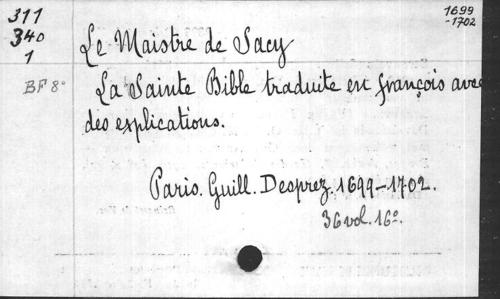 311
340
1
BF 8°
1699
-1702
Le Maistre de Sacy
La Sainte Bible traduite en françois avec
des explications.
Paris. Guill. Desprez. 1699-1702.
36 vol. 16°.